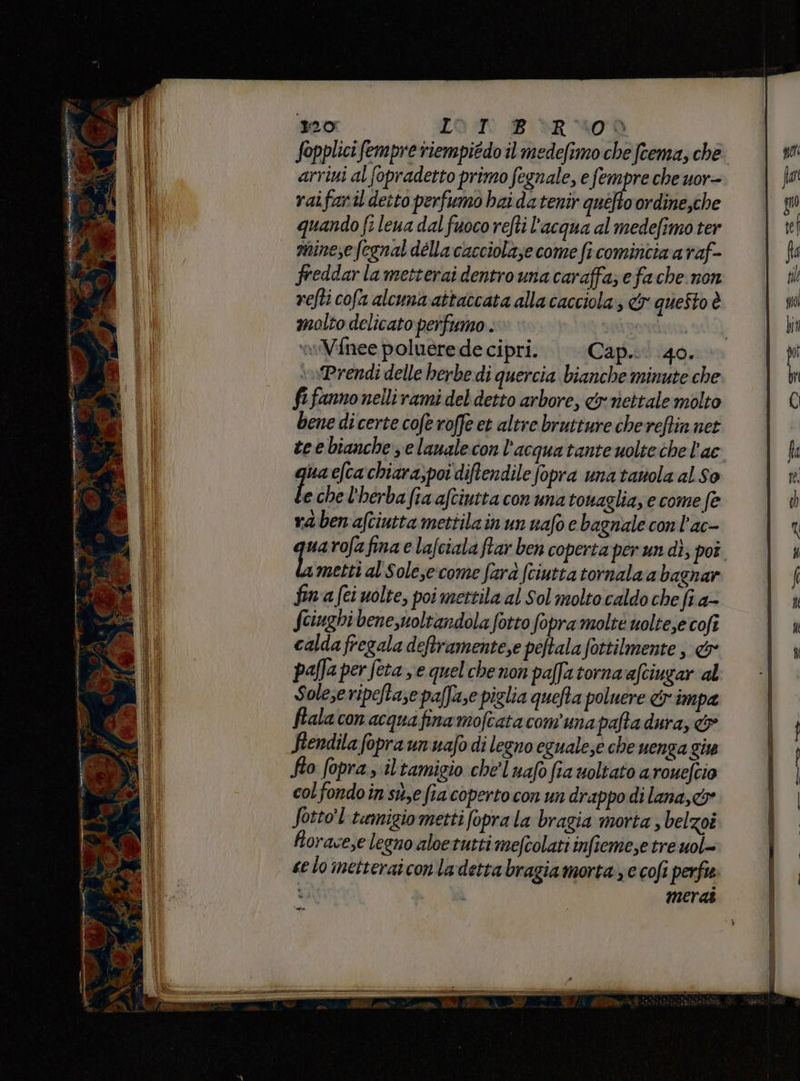 120 LIBRO
ſopplici ſempre riempiédo il medeſimo che ſcema, che
arriui al ſopradetto primo ſegnale, e ſempre che uor-
rai far il detto perfumo hai da tenir queſto ordine, che
quando ſi leua dal fuoco reſti l'acqua al medeſimo ter
mine, e ſegnal della cacciola, e come ſi comincia a raf-
freddar la metterai dentro una caraffa, e fa che non
reſti coſa alcuna attaccata alla cacciola, & queſto è
molto delicato perfumo.
Vſnee poluere de cipri. Cap. 40.
Prendi delle herbe di quercia bianche minute che
ſi fanno nelli rami del detto arbore, & nettale molto
bene di certe coſe roſſe et altre brutture che reſtin net
te e bianche, e lauale con l'acqua tante uolte che l'ac
qua eſca chiara, poi diſtendile ſopra una tauola al So
le che l'herba ſia aſciutta con una touaglia, e come ſe
rà ben aſciutta mettila in un uaſo e bagnale con l'ac-
qua roſa fina e laſciala ſtar ben coperta per un dì, poi
la metti al Sole, e come ſarà ſciutta tornala a bagnar
fin a ſei uolte, poi mettila al Sol molto caldo che ſi a-
ſciughi bene, uoltandola ſotto ſopra molte uolte, e coſi
calda fregala deſtramente, e peſtala ſottilmente, &
paſſa per ſeta, e quel che non paſſa torna aſciugar al
Sole, e ripeſta, e paſſa, e piglia queſta poluere & impa
ſtala con acqua fina moſcata com'una paſta dura, &
ſtendila ſopra un uaſo di legno eguale, e che uenga giu
ſto ſopra, il tamigio che'l uaſo ſia uoltato a roueſcio
col fondo in sù, e ſia coperto con un drappo di lana, &
ſotto'l tamigio metti ſopra la bragia morta, belzoi
ſtorace, e legno aloe tutti meſcolati inſieme, e tre uol-
te lo metterai con la detta bragia morta, e coſi perfu
merai